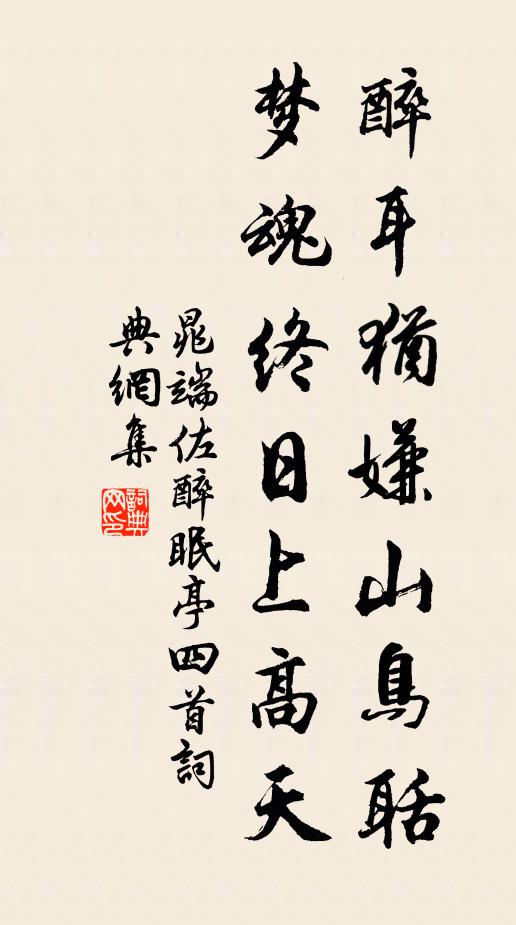 醉耳猶嫌山鳥聒
梦魂终日上高天
晁端佐醉眠亭四首詞
典網集
詞典
网印